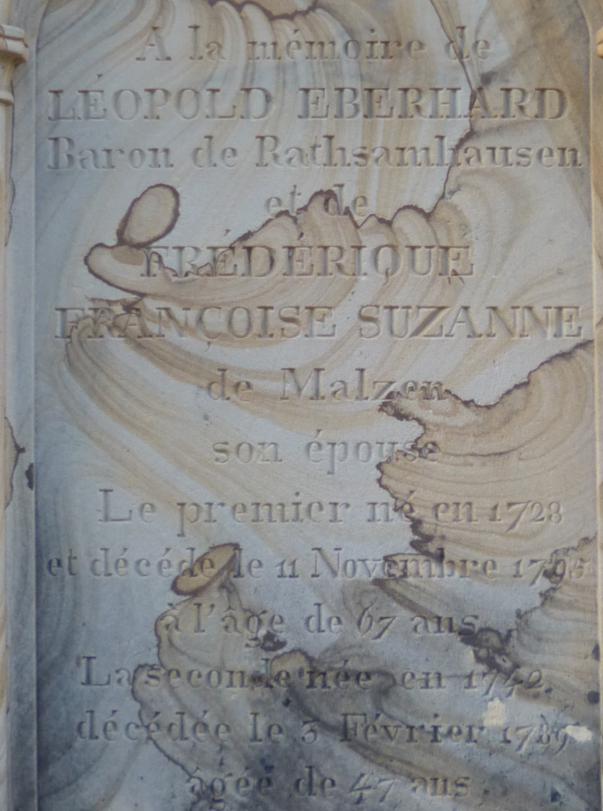 A la mémoire de
LÉOPOLD EBERHARD
Baron de Rathsamhausen
et de
FRÉDÉRIQUE
FRANÇOISE SUZANNE
de Malzen
son épouse
Le premier né en 1728
et décédé le 11 Novembre 1795
à l'âge de 67 ans
La seconde née en 1742
décédée le 3 Février 1789
âgée de 47 ans